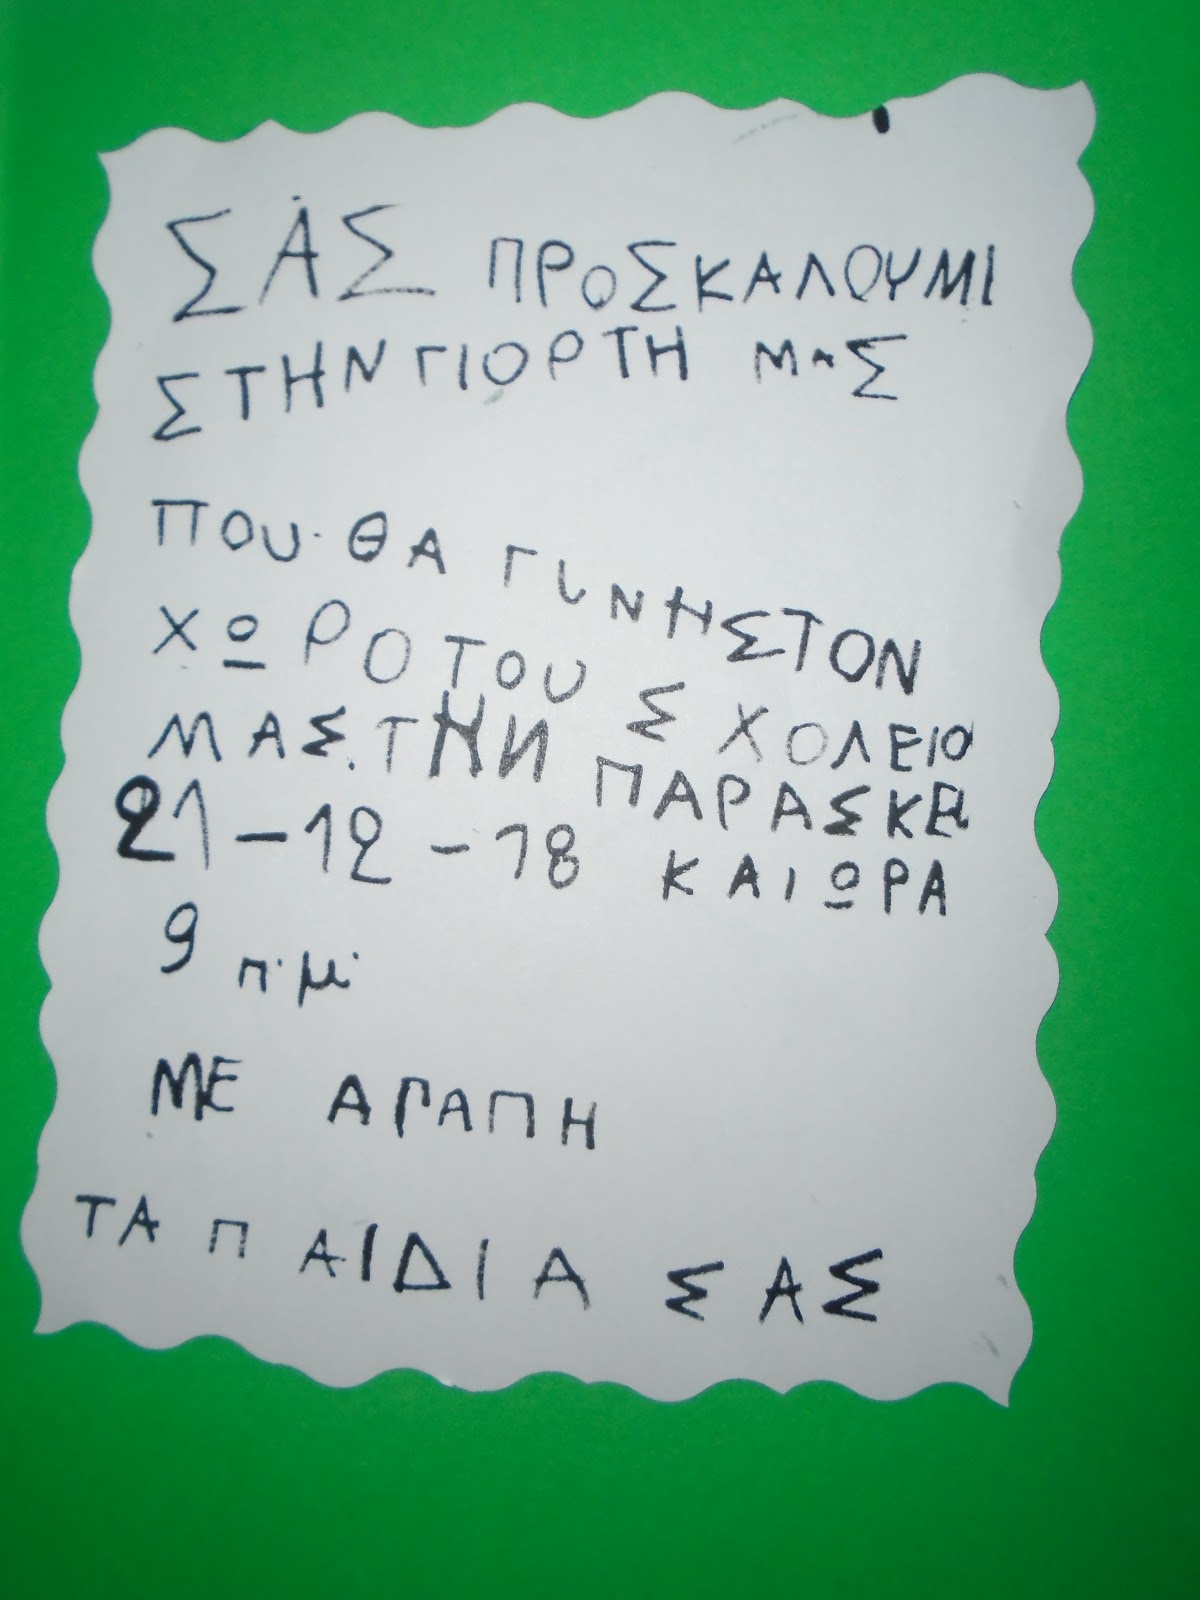 ΣΑΣ ΠΡΟΣΚΑΛΟΥΜΙ
ΣΤΗΝ ΓΙΟΡΤΗ ΜΑΣ
ΠΟΥ ΘΑ ΓΙΝΗ ΣΤΟΝ
ΧΩΡΟ ΤΟΥ ΣΧΟΛΕΙΟ
ΜΑΣ. ΤΗΝ
21-12-18 ΚΑΙ ΩΡΑ
9 π.μ.
ΜΕ ΑΓΑΠΗ
ΤΑ ΠΑΙΔΙΑ ΣΑΣ